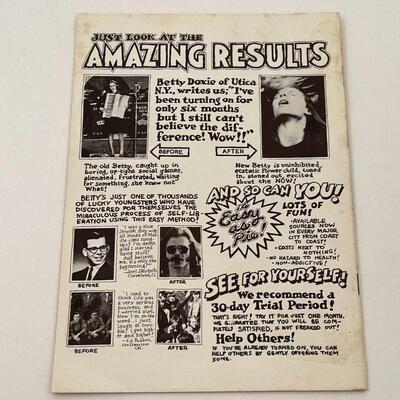 JUST LOOK AT THE
AMAZING RESULTS
Betty Doxie of Utica
N.Y., writes us; "I've
been turning on for
only six months
but I still can't
believe the dif-
ference! Wow!!"
BEFORE
AFTER
The old Betty, caught up in
boring, up-tight social games,
alienated, frustrated, waiting
for something, she knew not
what!
New Betty is uninhibited,
ecstatic flower child, tuned
in, stoned out, excited
about the NOW!
BETTY'S JUST ONE OF THOUSANDS
OF LUCKY YOUNGSTERS WHO HAVE
DISCOVERED FOR THEMSELVES THE
MIRACULOUS PROCESS OF SELF-LIB-
ERATION USING THE EASY METHOD!
AND SO CAN YOU!
It's
Easy
as
Pie!
LOTS OF
FUN!
• AVAILABLE
SOURCES NOW
IN EVERY MAJOR
CITY FROM COAST
TO COAST!
• COSTS NEXT TO
NOTHING!
• NO HAZARD TO HEALTH!
• NON-ADDICTIVE!
"I was a nice
Jewish Boy with
BEFORE
AFTER
"I used to
think life was
a very serious
business, and
I worried alot.
Now I'm on the
weed. I just
laugh at trou-
ble! I get high-
er and higher!"
San Francisco
Cal.
BEFORE
AFTER
SEE FOR YOURSELF!
We recommend a
30-day Trial Period!
THAT'S RIGHT! TRY IT FOR JUST ONE MONTH.
WE GUARANTEE THAT YOU WILL BE COM-
PLETELY SATISFIED, IF NOT FREAKED OUT!
Help Others!
IF YOU'RE ALREADY TURNED ON, YOU CAN
HELP OTHERS BY GENTLY OFFERING THEM
SOME.